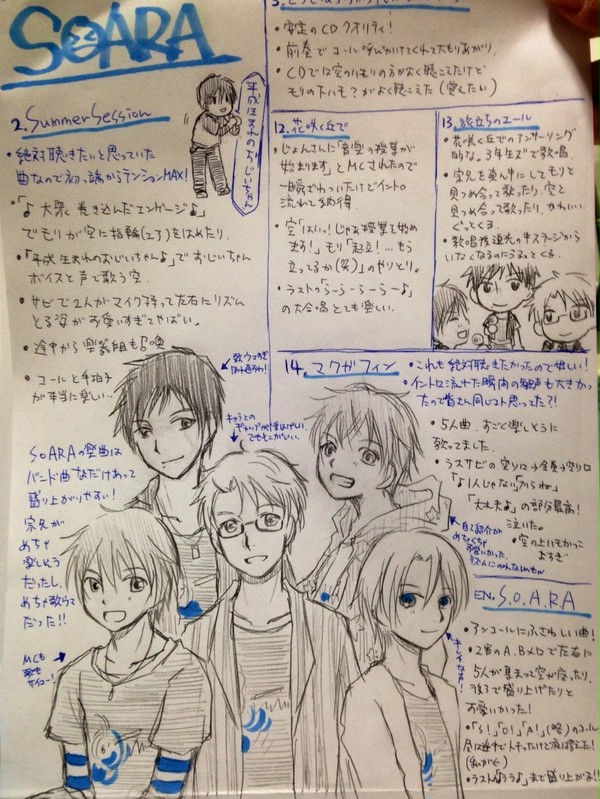 SOARA
・安定のCDクオリティ！
・前奏でコール呼びかけてくれて大もりあがり。
・CDでは空のハモリの方がよく聴こえたけど
モリの下ハモ？がよく聴こえた(覚えたい)
2. Summer Session
・絶対聴きたいと思っていた
曲なので初っ端からテンションMAX！
・「♪大衆巻き込んだエンゲージ♪」
でモリが空に指輪(エア)をはめたり、
・「平成生まれのおじいちゃん♪」でおじいちゃん
ボイスと声で歌う空
・サビで2人がマイク持って左右にリズム
とる姿が可愛いすぎてやばい。
・途中から楽器組も召喚
・コールと手拍子
が本当に楽しい…
平成生まれのおじいちゃん
12. 花咲く丘で
・じょんさんに「音楽の授業が
始まります」とMCされたので
一瞬ざわついたけどイントロ
流れて納得。
・空「はいっ！じゃあ授業を始め
ます！」モリ「起立！…もう
立ってるか(笑)」のやりとり。
・ラストの「らーらーらーらー♪」
の大合唱とても楽しい。
13. 旅立ちのエール
・花咲く丘でのアンサーソング
的な、3年生ズで歌唱。
・宗兄を真ん中にしてもりと
見つめ合って歌ったり、空と
見つめ合って歌ったり、かわいい。
ぐっとくる。
・歌唱後逆光の中ステージから
いなくなるのにうるっとくる。
14. マクガフィン
・これも絶対聴きたかったので嬉しい！
・イントロ流れた瞬間の歓声も大きかっ
たので皆さん同じコト思ってた？！
・5人曲、すごく楽しそうに
歌ってました。
・ラスサビの空ソロ→全員→空ソロ
「♪1人じゃない」「からね」
「大丈夫♪」の部分最高！
泣いた。
・空の上ハモかっこ
よすぎ
SOARAの楽曲は
バンド曲なだけあって
盛り上がりやすい！
宗兄が
めちゃ
楽しそう
だったし、
めちゃ歌うマ
だった！！
MCも
歌も
サイコー！
キレイな声！
EN. S.O.A.R.A
・アンコールにふさわしい曲！
・2番のA、Bメロで左右に
5人が集まって空が座ったり、
後ろで盛り上げたりと
可愛いかった！
・「S！」「O！」「A！」(略)のコール
・ラスト「ララ♪」まで盛り上がる！！